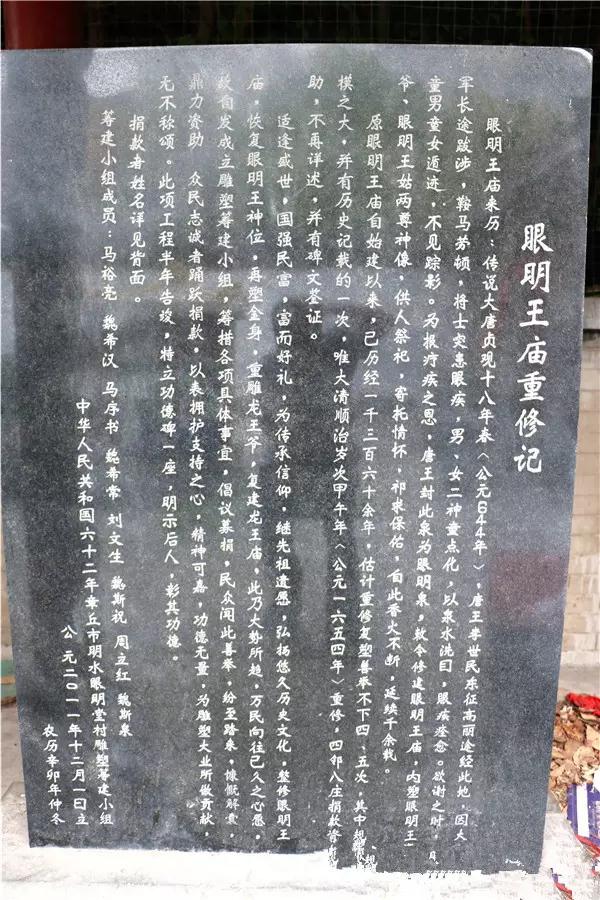 眼明王庙重修记
眼明王庙来历：传说大唐贞观十八年春〈公元644年〉，唐王李世民东征高丽途经此地，因大
军长途跋涉，鞍马劳顿，将士突患眼疾，男、女二神童点化，以泉水洗目，眼疾痊愈。欲谢之时，
童男童女遁迹，不见踪影。为报疗疾之恩，唐王封此泉为眼明泉，敕令修建眼明王庙，内塑眼明王
爷、眼明王姑两尊神像，供人祭祀，寄托情怀，祈求保佑，自此香火不断，延续千余载。
原眼明王庙自始建以来，已历经一千三百六十余年，估计重修复塑善举不下四、五次，其中规
模之大，并有历史记载的一次，唯大清顺治岁次甲午年〈公元一六五四年〉重修，四邻八庄捐款资
助，不再详述，并有碑文签证。
适逢盛世，国强民富，富而好礼，为传承信仰，继先祖遗愿，弘扬悠久历史文化，整修眼明王
庙，恢复眼明王神位，再塑金身，重雕龙王爷，复建龙王庙，此乃大势所趋，万民向往已久之心愿，
故自发成立雕塑筹建小组，筹措各项具体事宜，倡议募捐，民众闻此善举，纷至踏来，慷慨解囊，
鼎力资助 众民志诚者踊跃捐款，以表拥护支持之心，精神可嘉，功德无量，为雕塑大业所做贡献，
无不称颂。此项工程半年告竣，特立功德碑一座，明示后人，彰其功德。
捐款者姓名详见背面。
筹建小组成员：马裕亮 魏希汉 马序书 魏希常 刘文生 魏斯祝 周立红 魏斯泉
中华人民共和国六十二年章丘市明水眼明堂村雕塑筹建小组
公元二0一一年十二月一日立
农历辛卯年仲冬